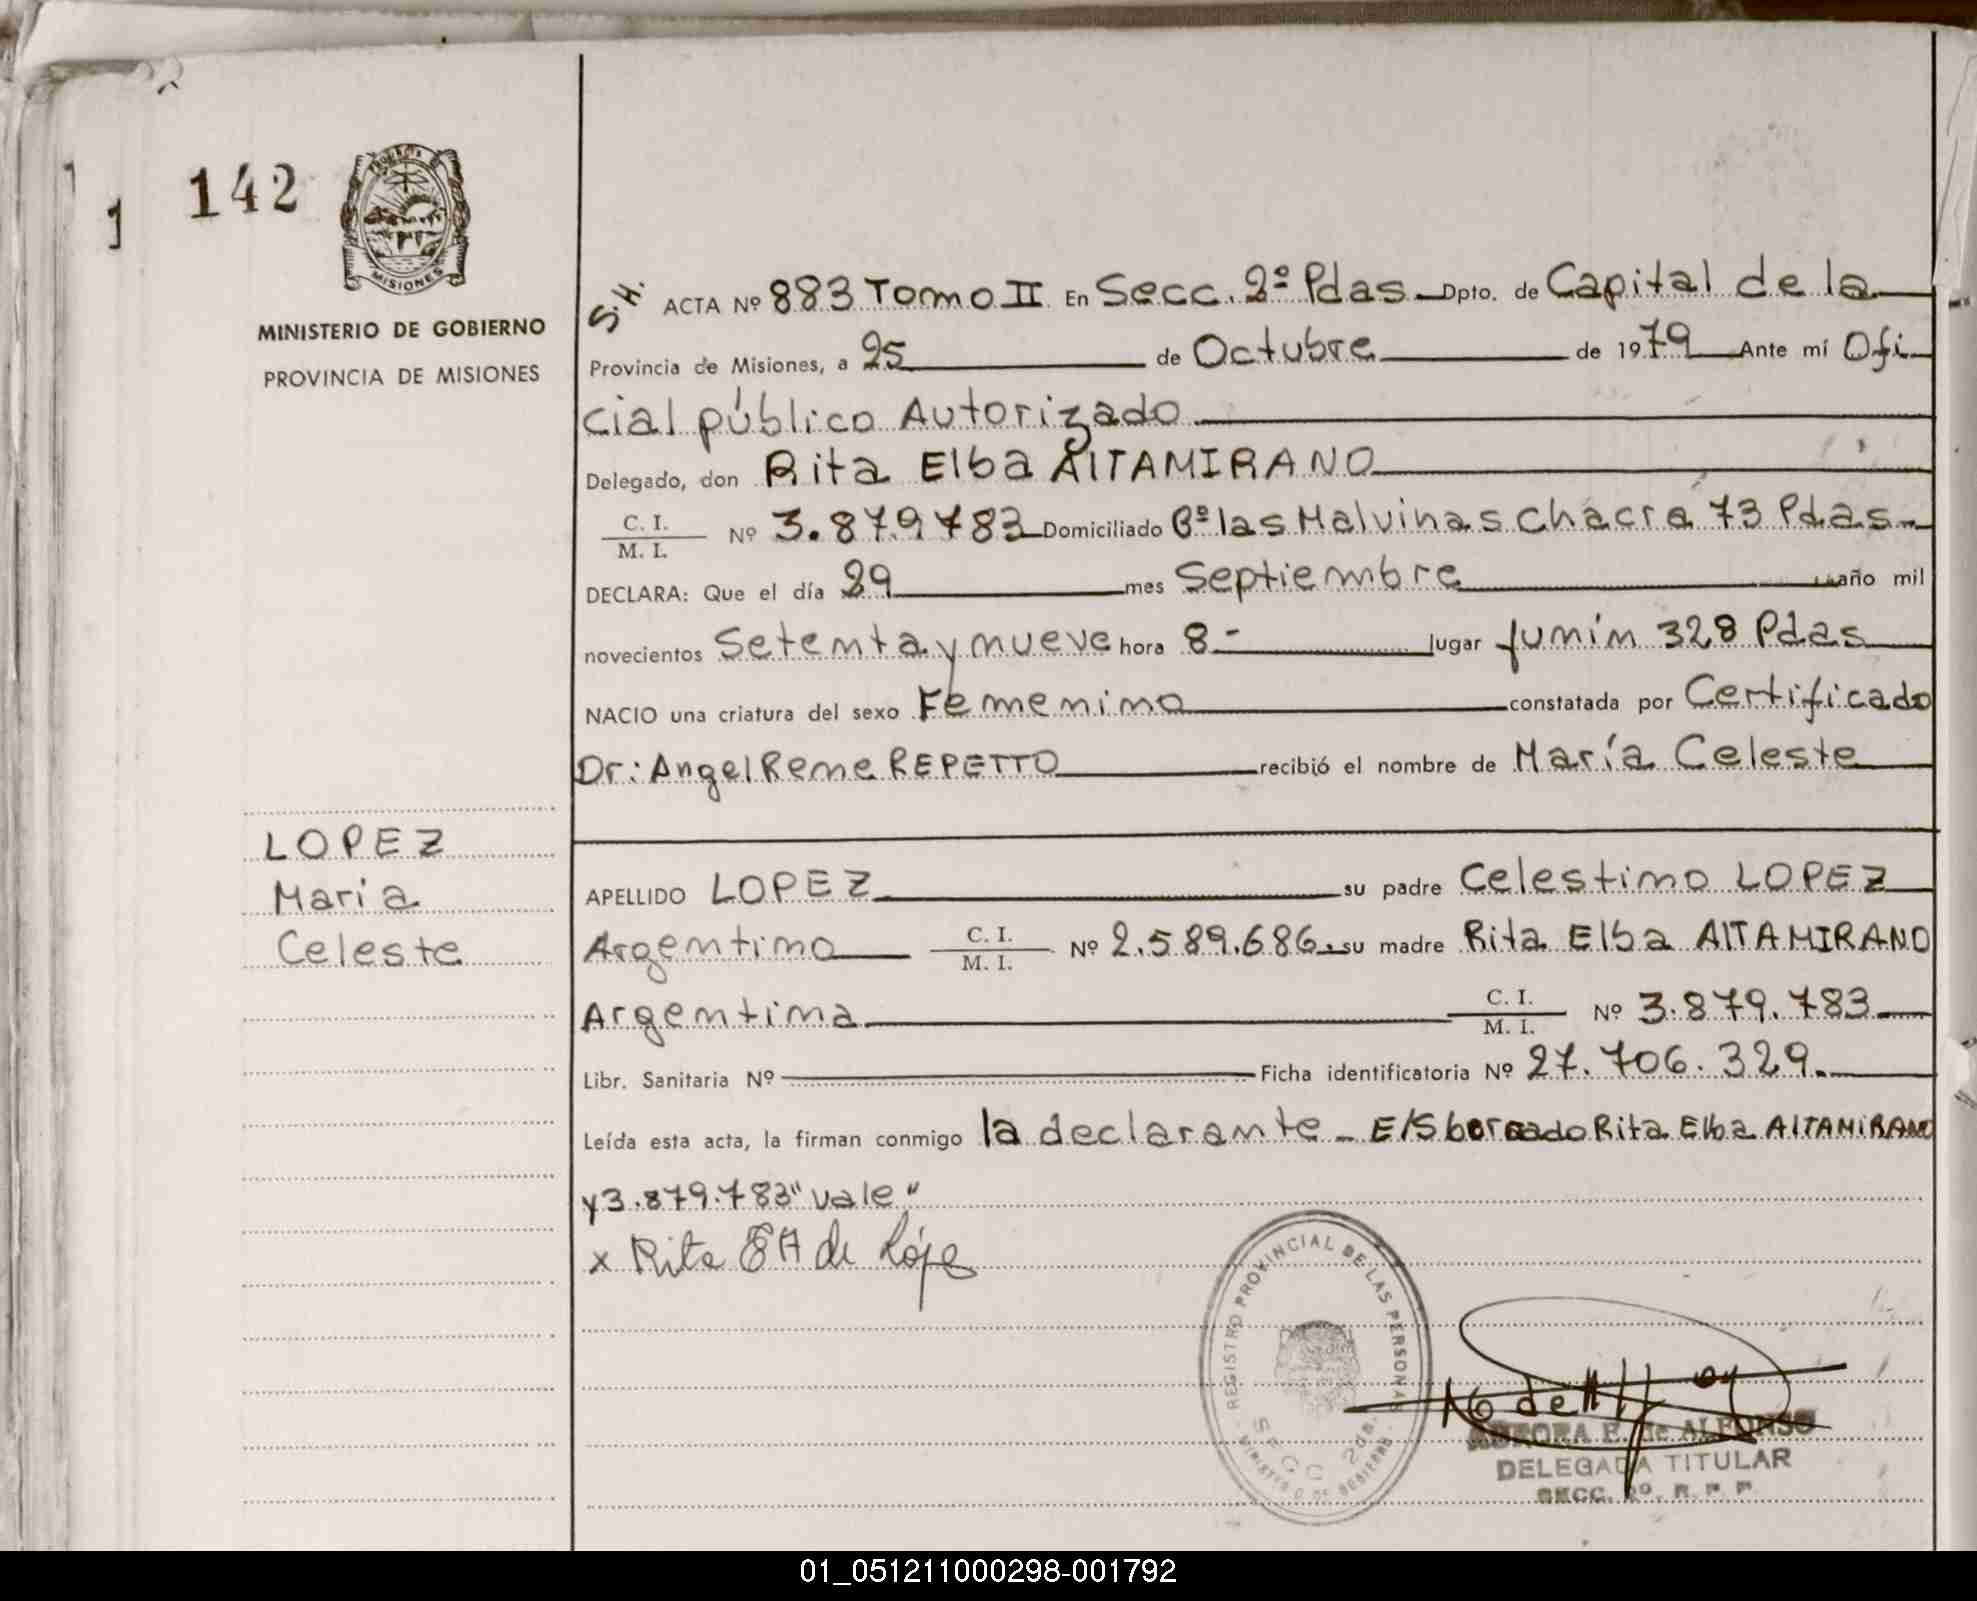 1 142
PROVINCIA DE
MISIONES
MINISTERIO DE GOBIERNO
PROVINCIA DE MISIONES
LOPEZ
Maria
Celeste
S.H. ACTA Nº 883 Tomo II En Secc. 2º Pdas Dpto. de Capital de la
Provincia de Misiones, a 25 de Octubre de 1979 Ante mí Ofi
cial público Autorizado
Delegado, don Rita Elba AlTAMIRANO
C. I.
M. I. Nº 3.879.783 Domiciliado Bº las Malvinas chacra 73 Pdas
DECLARA: Que el día 29 mes Septiembre año mil
novecientos Setenta y nueve hora 8- lugar Junín 328 Pdas
NACIO una criatura del sexo Femenino constatada por Certificado
Dr: Angel Rene REPETTO recibió el nombre de María Celeste
APELLIDO LOPEZ su padre Celestino LOPEZ
Argentino C. I. M. I. Nº 2.589.686. su madre Rita Elba AlTAMIRANO
Argentina C. I. M. I. Nº 3.879.783
Libr. Sanitaria Nº Ficha identificatoria Nº 27.706.329.
Leída esta acta, la firman conmigo la declarante - E/S borrado Rita Elba AlTAMIRANO
y 3.879.783 "vale"
x Rita E A de Lópe
REGISTRO PROVINCIAL DE LAS PERSONAS
SECC 2da.
MINISTERIO DE GOBIERNO
AURORA E. de ALFONSO
DELEGADA TITULAR
SECC. 2º. R. P. P.
01_051211000298-001792